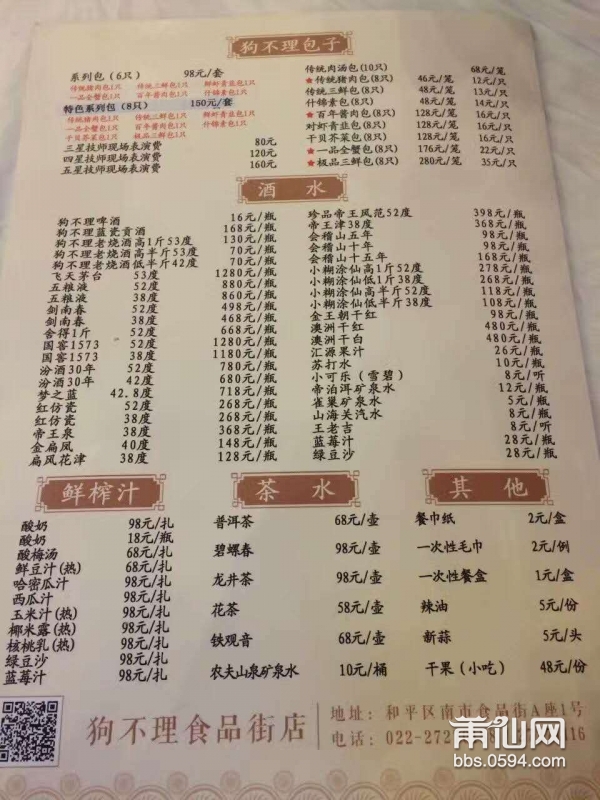 狗不理包子
系列包（6只） 98元/套
传统猪肉包1只 传统三鲜包1只 鲜虾青韭包1只
一品全蟹包1只 百年酱肉包1只 什锦素包1只
特色系列包（8只） 150元/套
传统猪肉包1只 传统三鲜包1只 鲜虾青韭包1只
一品全蟹包1只 百年酱肉包1只 什锦素包1只
干贝芥菜包1只 极品三鲜包1只
三星技师现场表演费 80元
四星技师现场表演费 120元
五星技师现场表演费 160元
传统肉汤包(10只) 68元/笼
★传统猪肉包(8只) 46元/笼 12元/只
传统三鲜包(8只) 48元/笼 13元/只
什锦素包(8只) 48元/笼 14元/只
★百年酱肉包(8只) 128元/笼 16元/只
对虾青韭包(8只) 128元/笼 16元/只
干贝芥菜包(8只) 128元/笼 16元/只
★一品全蟹包(8只) 176元/笼 22元/只
★极品三鲜包(8只) 280元/笼 35元/只
酒水
狗不理啤酒 16元/瓶
狗不理蓝瓷贡酒 168元/瓶
狗不理老烧酒高1斤53度 130元/瓶
狗不理老烧酒高半斤53度 70元/瓶
狗不理老烧酒低半斤42度 70元/瓶
飞天茅台 53度 1280元/瓶
五粮液 52度 880元/瓶
五粮液 38度 860元/瓶
剑南春 52度 498元/瓶
剑南春 38度 468元/瓶
舍得1斤 52度 668元/瓶
国窖1573 52度 1280元/瓶
国窖1573 38度 1180元/瓶
汾酒30年 52度 780元/瓶
汾酒30年 42度 680元/瓶
梦之蓝 42.8度 718元/瓶
红仿瓷 52度 268元/瓶
红仿瓷 38度 268元/瓶
帝王泉 38度 368元/瓶
金扁凤 40度 148元/瓶
扁凤花津 38度 128元/瓶
珍品帝王风范52度 398元/瓶
帝王津38度 368元/瓶
会稽山五年 68元/瓶
会稽山十年 98元/瓶
会稽山十五年 168元/瓶
小糊涂仙高1斤52度 278元/瓶
小糊涂仙低1斤38度 268元/瓶
小糊涂仙高半斤52度 118元/瓶
小糊涂仙低半斤38度 108元/瓶
金王朝干红 98元/瓶
澳洲干红 480元/瓶
澳洲干白 480元/瓶
汇源果汁 26元/瓶
苏打水 10元/瓶
小可乐（雪碧） 8元/听
帝泊洱矿泉水 12元/瓶
雀巢矿泉水 5元/瓶
山海关汽水 8元/瓶
王老吉 8元/听
蓝莓汁 28元/瓶
绿豆沙 28元/瓶
鲜榨汁
酸奶 98元/扎
酸奶 18元/瓶
酸梅汤 68元/扎
鲜豆汁(热) 68元/扎
哈密瓜汁 98元/扎
西瓜汁 98元/扎
玉米汁(热) 98元/扎
椰米露(热) 98元/扎
核桃乳(热) 98元/扎
绿豆沙 98元/扎
蓝莓汁 98元/扎
茶水
普洱茶 68元/壶
碧螺春 98元/壶
龙井茶 98元/壶
花茶 58元/壶
铁观音 68元/壶
农夫山泉矿泉水 10元/桶
其他
餐巾纸 2元/盒
一次性毛巾 2元/例
一次性餐盒 1元/盒
辣油 5元/份
新蒜 5元/头
干果（小吃） 48元/份
狗不理食品街店
地址：和平区南市食品街A座1号
电话：022-272
16
莆仙网
bbs.0594.com